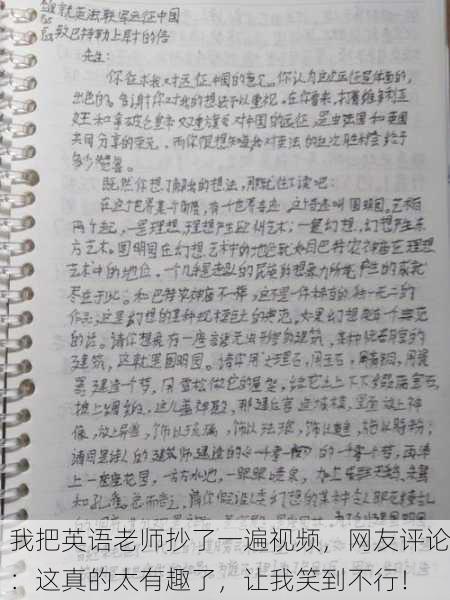 就英法联军远征中国
致巴特勒上尉的信
先生：
你征求我对远征中国的意见。你认为这次远征是体面的，
出色的。多谢你对我的想法予以重视。在你看来，打着维多利亚
女王和拿破仑皇帝双重旗号对中国的远征，是由法国和英国
共同分享的荣誉，而你很想知道我对英法的这次胜利会给予
多少赞誉。
既然你想了解我的想法，那就往下读吧：
在这个世界某个角落，有一个世界奇迹，这个奇迹叫圆明园，艺术有
两个起源，一是理想，理想产生欧洲艺术；一是幻想，幻想产生东
方艺术。圆明园在幻想艺术中的地位就如同巴特农神庙在理想
艺术中的地位。一个几乎是超人的民族的想象力所能产生的成就
尽在于此。和巴特农神庙不一样，这不是一件稀有的独一无二的
作品；这是幻想的某种规模巨大的典范，如果幻想能有一个典范
的话。请你想象有一座言语无法形容的建筑，某种恍若月宫的
建筑，这就是圆明园。请你用大理石，用玉石，用青铜，用瓷
器建造一个梦，用雪松做它的屋架，给它上上下下缀满宝石，
披上绸缎，这儿盖神殿，那建后宫造城楼，里面放上神
像，放上异兽，饰以琉璃，饰以珐琅，饰以黄金，施以脂粉；
请同是诗人的建筑师建造的一千零一夜的一千零一个梦，再添
上一座座花园，一方方水池，一眼眼喷泉，加上成群的天鹅、朱鹭
和孔雀。总而言之，请你假设人类幻想的某种令人眼花缭乱
我把英语老师抄了一遍视频，网友评论
：这真的太有趣了，让我笑到不行！